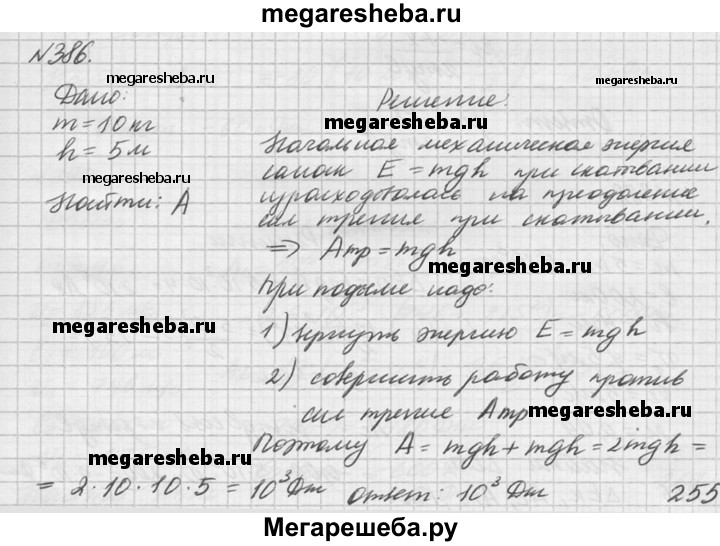 megaresheba.ru
№386.
megaresheba.ru
megaresheba.ru
Дано:
Решение:
m = 10 кг
megaresheba.ru
h = 5 м
Начальная механическая энергия
санок E = mgh при скатывании
megaresheba.ru
израсходовалась на преодоление
Найти: A
сил трения при скатывании.
=> Aтр = mgh
megaresheba.ru
При подъме надо:
megaresheba.ru
1) вернуть энергию E = mgh
2) совершить работу против
сил трения Aтр
megaresheba.ru
Поэтому A = mgh + mgh = 2mgh =
megaresheba.ru
= 2·10·10·5 = 10³ Дж ответ: 10³ Дж
255
Мегарешеба.ру